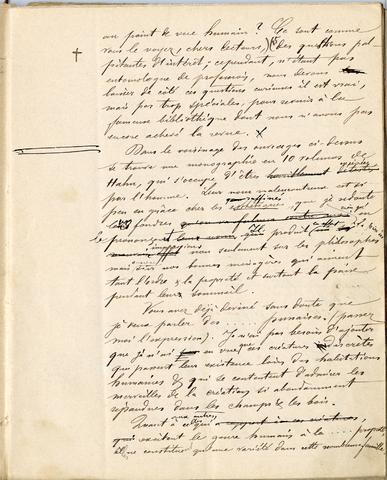 au point de vue humain? Ce sont comme
vous le voyez, chers lecteurs, des questions pal-
pitantes d'intérêt; cependant, n'étant pas
entomologue de profession, nous devons
laisser de côté ces questions curieuses il est vrai,
mais par trop spéciales, pour revenir à la
fameuse bibliothèque dont nous n'avons pas
encore achevé la revue. X
Dans le voisinage des ouvrages ci-dessus
se trouve une monographie en 10 volumes de
Hahn, qui s'occupe d'êtres
par l'homme. Leur nom malencontreux est si
peu en grâce chez les raffinés que je redoute
les foudres
le prononçant produit
non seulement sur les philosophes
mais sur nos bonnes ménagères qui aiment
tant l'ordre & la propreté et surtout la paix
pendant leur sommeil.
Vous avez déjà deviné sans doute que
je veux parler des ..... punaises. (passez
moi l'expression). Je n'ai pas besoin d'ajouter
que je n'ai en vue que ces créatures discrètes
qui passent leur existence loin des habitations
humaines & qui se contentent d'admirer les
merveilles de la création si abondamment
répandues dans les champs & les bois.
Quant à celles qui
excitent le genre humain à la .... propreté
constitue qu'une variété dans cette nombreuse famille